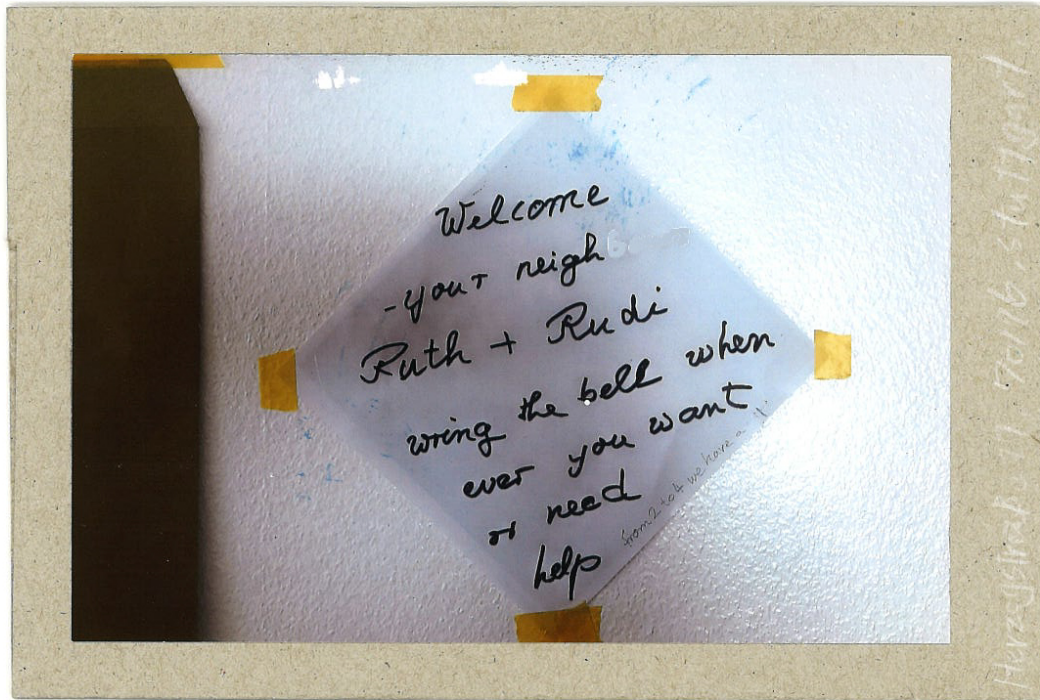 Welcome
-your neigh
Ruth + Rudi
wring the bell when
ever you want
or need
help
from 2 to 4 we have a
70176 Stuttgart